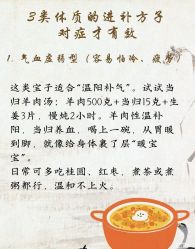 3类体质的进补方子
对症才有效
1. 气血虚弱型（容易怕冷、疲劳）
这类宝子适合“温阳补气”。试试当
归羊肉汤：羊肉500克+当归15克+生
姜3片，慢炖2小时。羊肉性温补
阳，当归养血，喝上一碗，从胃暖
到脚，就像给身体裹了层“暖宝
宝”。
日常可多吃桂圆、红枣，煮茶或煮
粥都行，温和不上火。